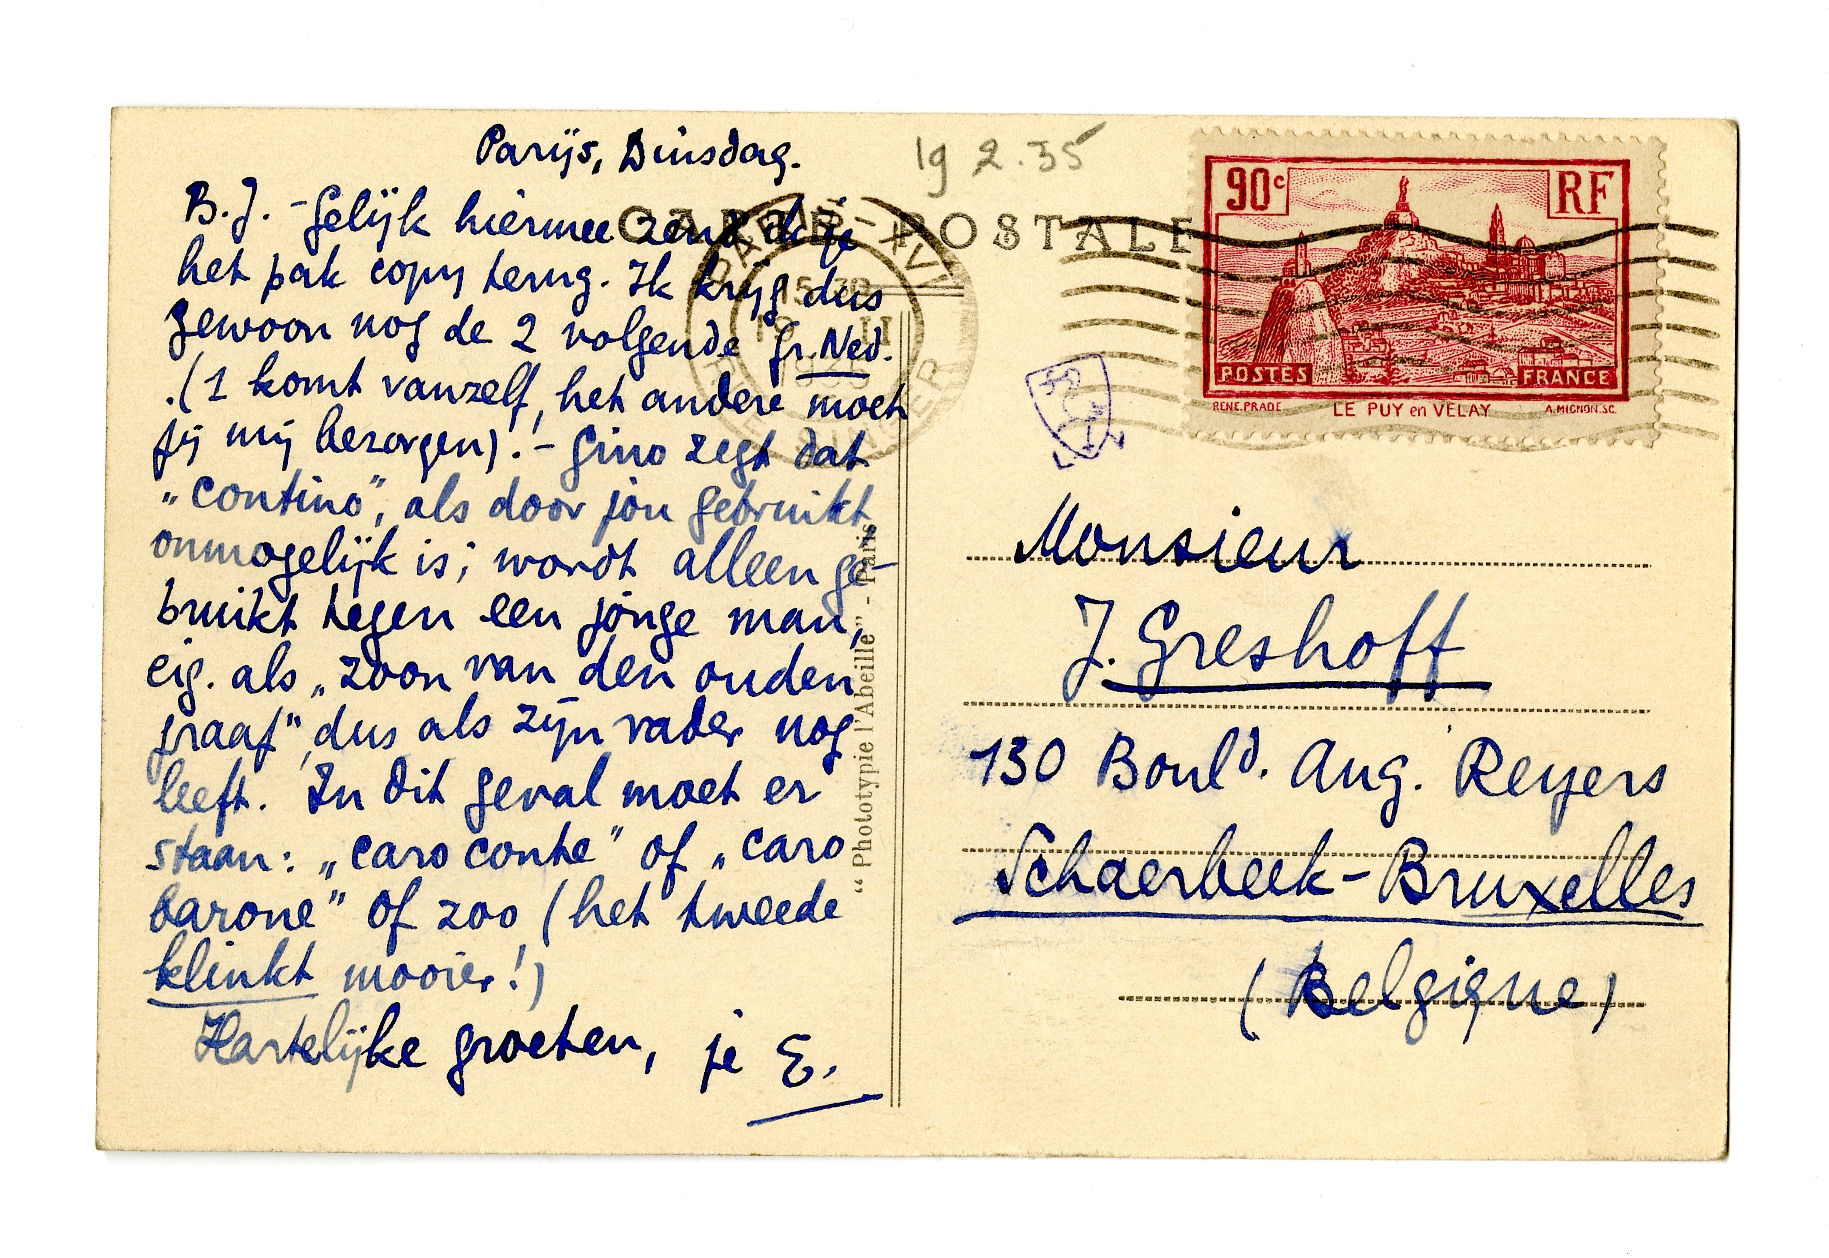 Parijs, Dinsdag.
19 2.35
B.J. - Gelijk hiermee zend ik je
het pak copy terug. Ik krijg dus
gewoon nog de 2 volgende Gr. Ned.
(1 komt vanzelf, het andere moet
jij mij bezorgen)! - Gino zegt dat
„contino”, als door jou gebruikt
onmogelijk is; wordt alleen ge-
bruikt tegen een jonge man,
eig. als „zoon van den ouden
graaf”, dus als zijn vader nog
leeft. In dit geval moet er
staan: „caro conte” of „caro
barone” of zoo (het tweede
klinkt mooier!)
Hartelijke groeten, je E.
CARTE POSTALE
PARIS XVI
15
19 II
1935
"Phototypie l'Abeille" - Paris
90c
RF
POSTES
FRANCE
RENE.PRADE LE PUY en VELAY A.MIGNON.SC.
Monsieur
J. Greshoff
130 Bould. Aug. Reyers
Schaerbeek-Bruxelles
(Belgique)